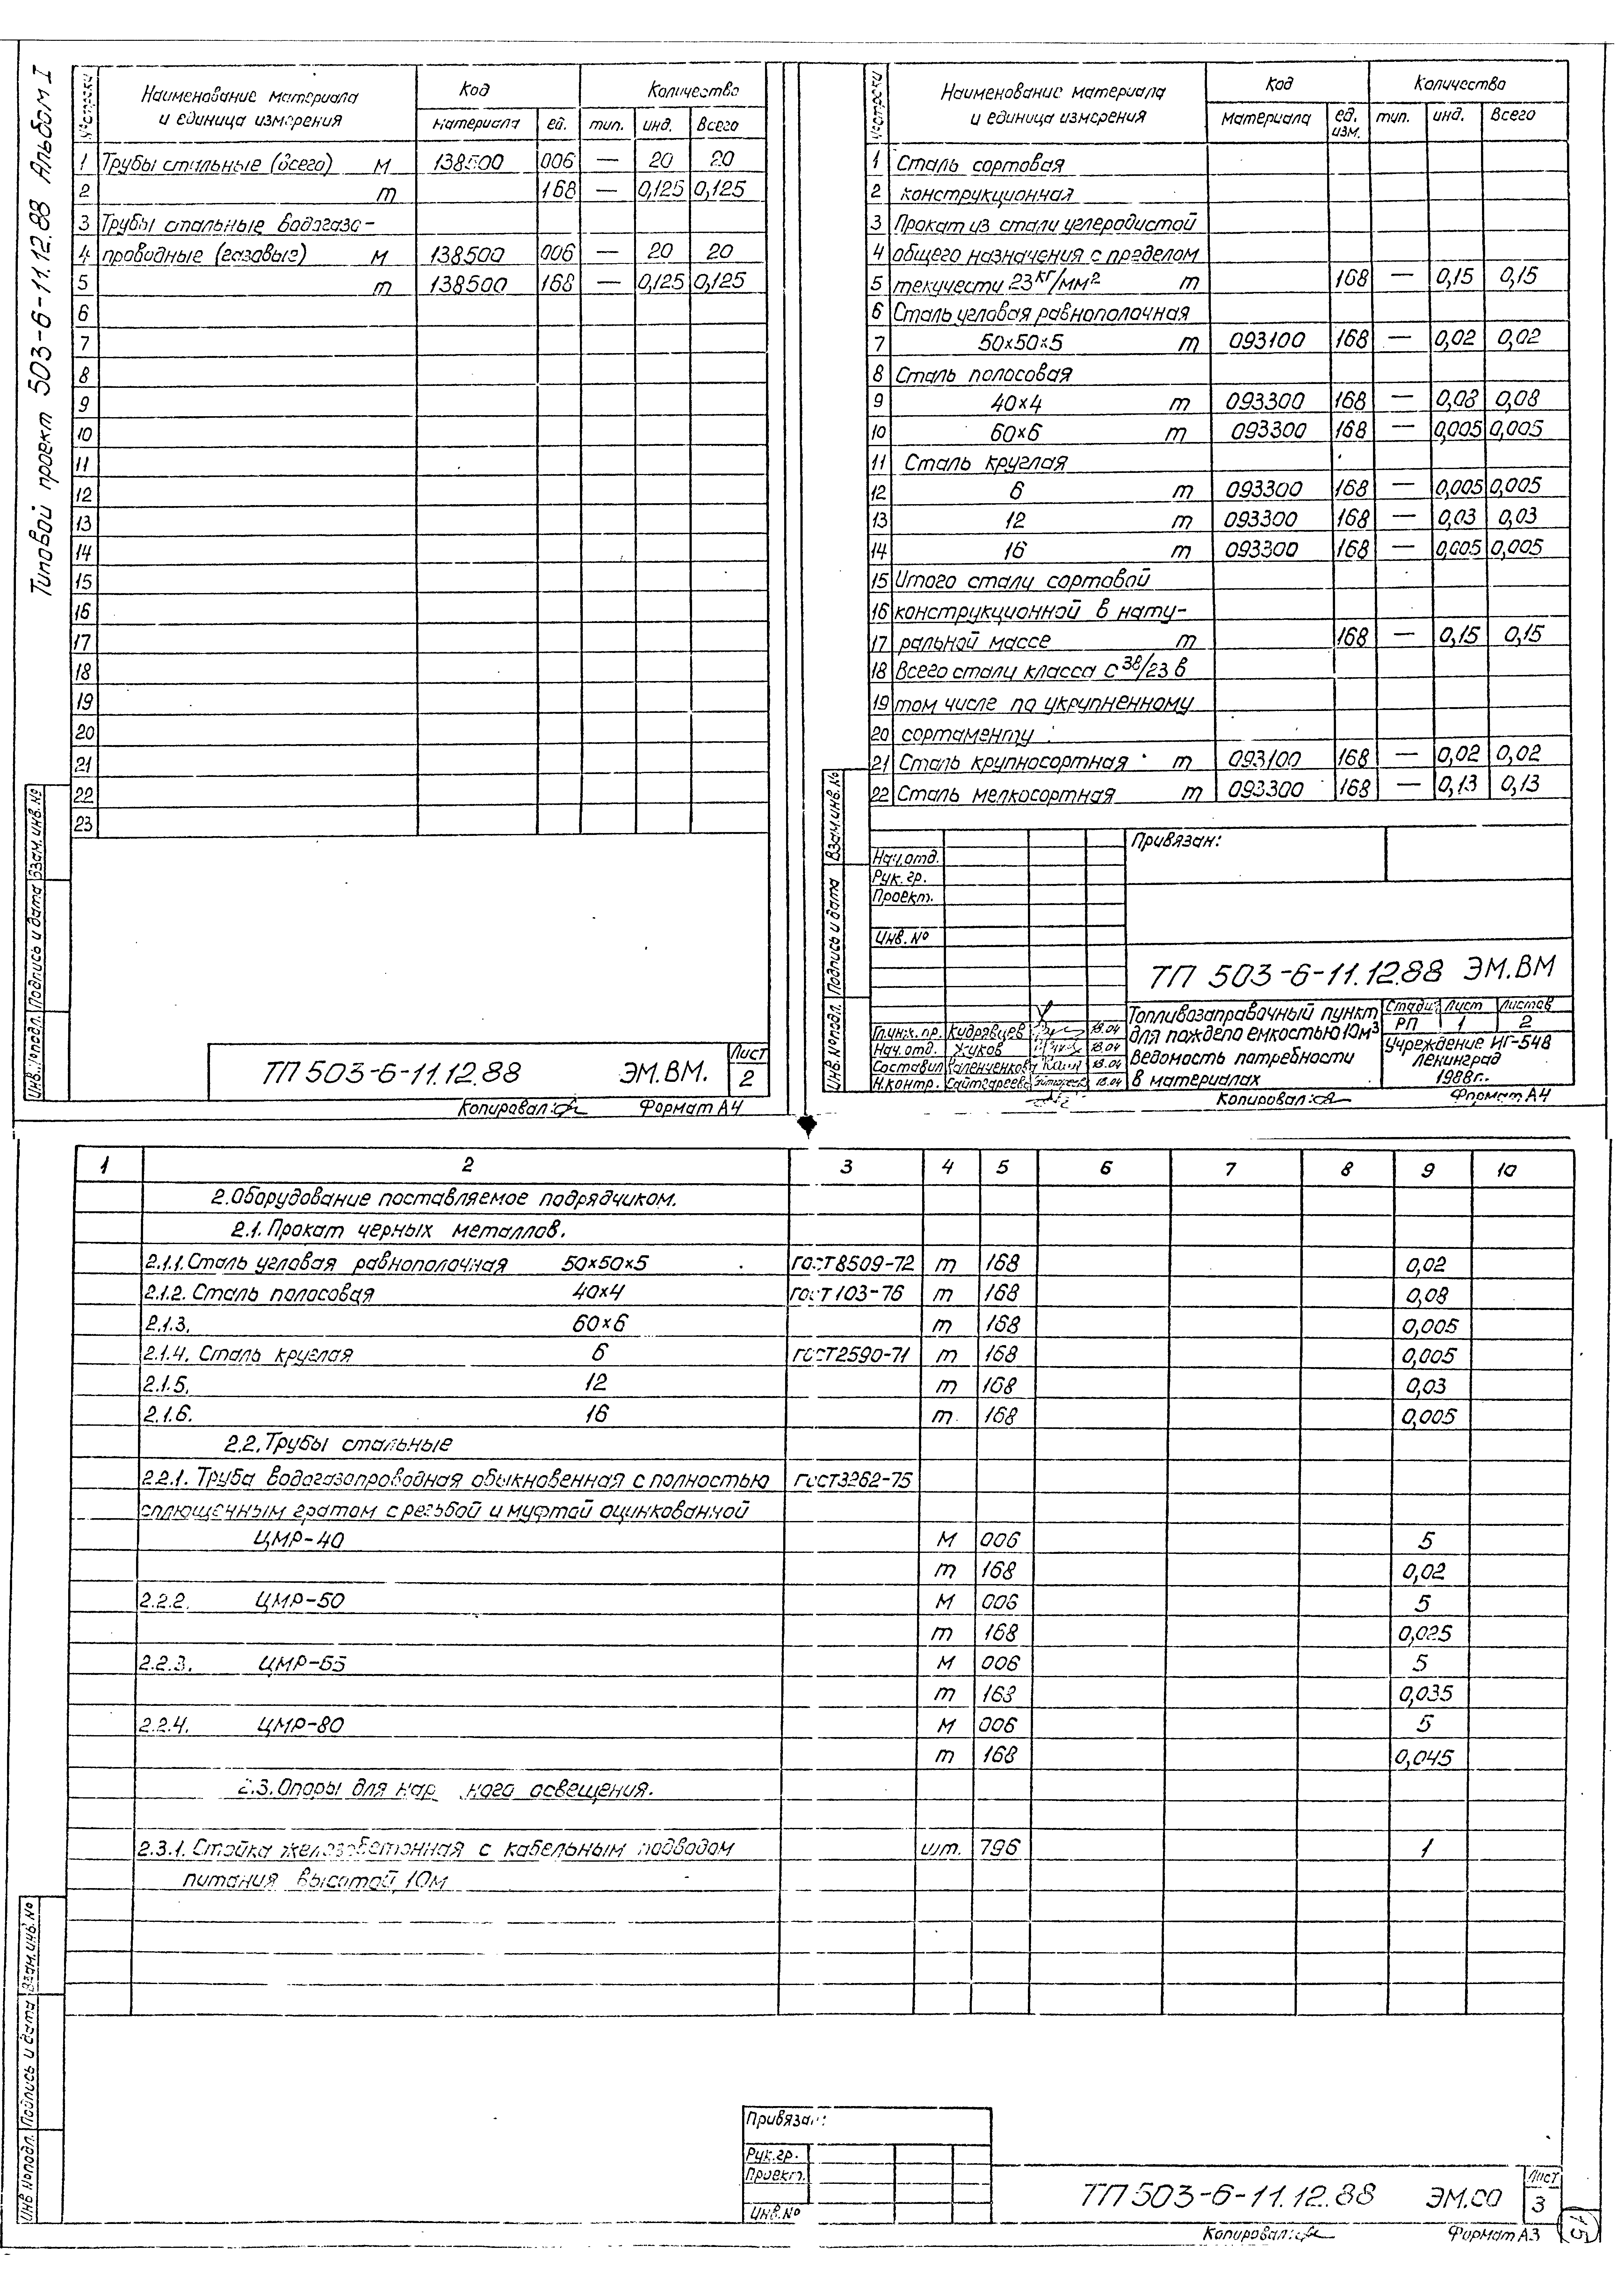 Типовой проект 503-6-11.12.88 Альбом I
№ строки Наименование материала и единица измерения Код Количество
материала ед. тип. инд. Всего
1 Трубы стальные (всего) м 138500 006 — 20 20
2 т 168 — 0,125 0,125
3 Трубы стальные водогазо-
4 проводные (газовые) м 138500 006 — 20 20
5 т 138500 168 — 0,125 0,125
6
7
8
9
10
11
12
13
14
15
16
17
18
19
20
21
22
23
Инв.№подл. Подпись и дата Взам.инв.№
ТП 503-6-11.12.88 ЭМ.ВМ. Лист 2
Копировал: Формат А4
№ строки Наименование материала и единица измерения Код Количество
материала ед. изм. тип. инд. Всего
1 Сталь сортовая
2 конструкционная
3 Прокат из стали углеродистой
4 общего назначения с пределом
5 текучести 23кг/мм² т 168 — 0,15 0,15
6 Сталь угловая равнополочная
7 50х50х5 т 093100 168 — 0,02 0,02
8 Сталь полосовая
9 40х4 т 093300 168 — 0,08 0,08
10 60х6 т 093300 168 — 0,005 0,005
11 Сталь круглая
12 6 т 093300 168 — 0,005 0,005
13 12 т 093300 168 — 0,03 0,03
14 16 т 093300 168 — 0,005 0,005
15 Итого стали сортовой
16 конструкционной в нату-
17 ральной массе т 168 — 0,15 0,15
18 Всего стали класса С38/23 в
19 том числе по укрупненному
20 сортаменту
21 Сталь крупносортная т 093100 168 — 0,02 0,02
22 Сталь мелкосортная т 093300 168 — 0,13 0,13
Инв.№подл. Подпись и дата Взам.инв.№
Нач.отд.
Рук.гр.
Проект.
Инв.№
Привязан:
ТП 503-6-11.12.88 ЭМ.ВМ
Гл.инж.пр. Кудрявцев 18.04
Нач.отд. Жуков 18.04
Составил Валенченкова 18.04
Н.контр. Саитгареева 18.04
Топливозаправочный пункт
для пождепо емкостью 10м³
Ведомость потребности
в материалах
Стадия Лист Листов
РП 1 2
Учреждение ИГ-548
Ленинград
1988г..
Копировал: Формат А4
1 2 3 4 5 6 7 8 9 10
2.Оборудование поставляемое подрядчиком.
2.1. Прокат черных металлов.
2.1.1. Сталь угловая равнополочная 50х50х5 гост 8509-72 т 168 0,02
2.1.2. Сталь полосовая 40х4 гост 103-76 т 168 0,08
2.1.3. 60х6 т 168 0,005
2.1.4. Сталь круглая 6 гост 2590-71 т 168 0,005
2.1.5. 12 т 168 0,03
2.1.6. 16 т. 168 0,005
2.2. Трубы стальные
2.2.1. Труба водогазопроводная обыкновенная с полностью гост 3262-75
сплющенным гратом с резьбой и муфтой оцинкованной
ЦМР-40 м 006 5
т 168 0,02
2.2.2. ЦМР-50 м 006 5
т 168 0,025
2.2.3. ЦМР-65 м 006 5
т 168 0,035
2.2.4. ЦМР-80 м 006 5
т 168 0,045
2.3. Опоры для нар ного освещения.
2.3.1. Стойка железобетонная с кабельным подводом шт. 796 1
питания высотой 10м
Инв №подл. Подпись и дата Взам.инв.№
Привязан:
Рук.гр.
Проект.
Инв.№
ТП 503-6-11.12.88 ЭМ.СО Лист 3
Копировал: Формат А3
15